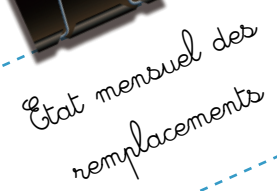 Etat mensuel des
remplacements